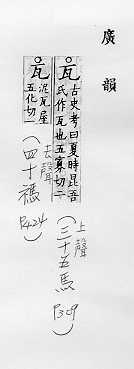 廣韻
瓦 古史考曰夏時昆吾
氏作瓦也五寡切二
上聲
(三十五馬)
P309
瓦 泥瓦屋
五化切
去聲
(四十禡)
P424